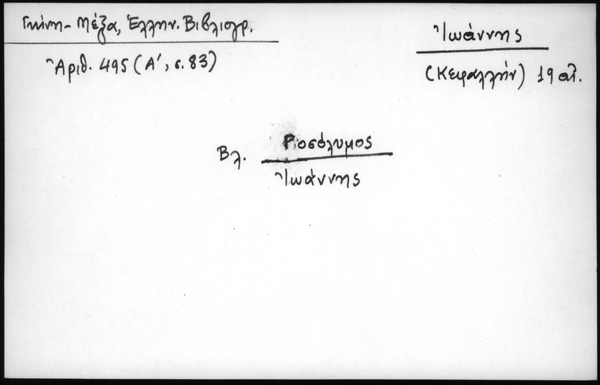 Γκίνη-Μέξα, Ἑλλην. Βιβλιογρ.
Ἀριθ. 495 (Α΄, σ. 83)
Ἰωάννης
(Κεφαλλήν) 19 αἰ.
Βλ. Ροσόλυμος
Ἰωάννης